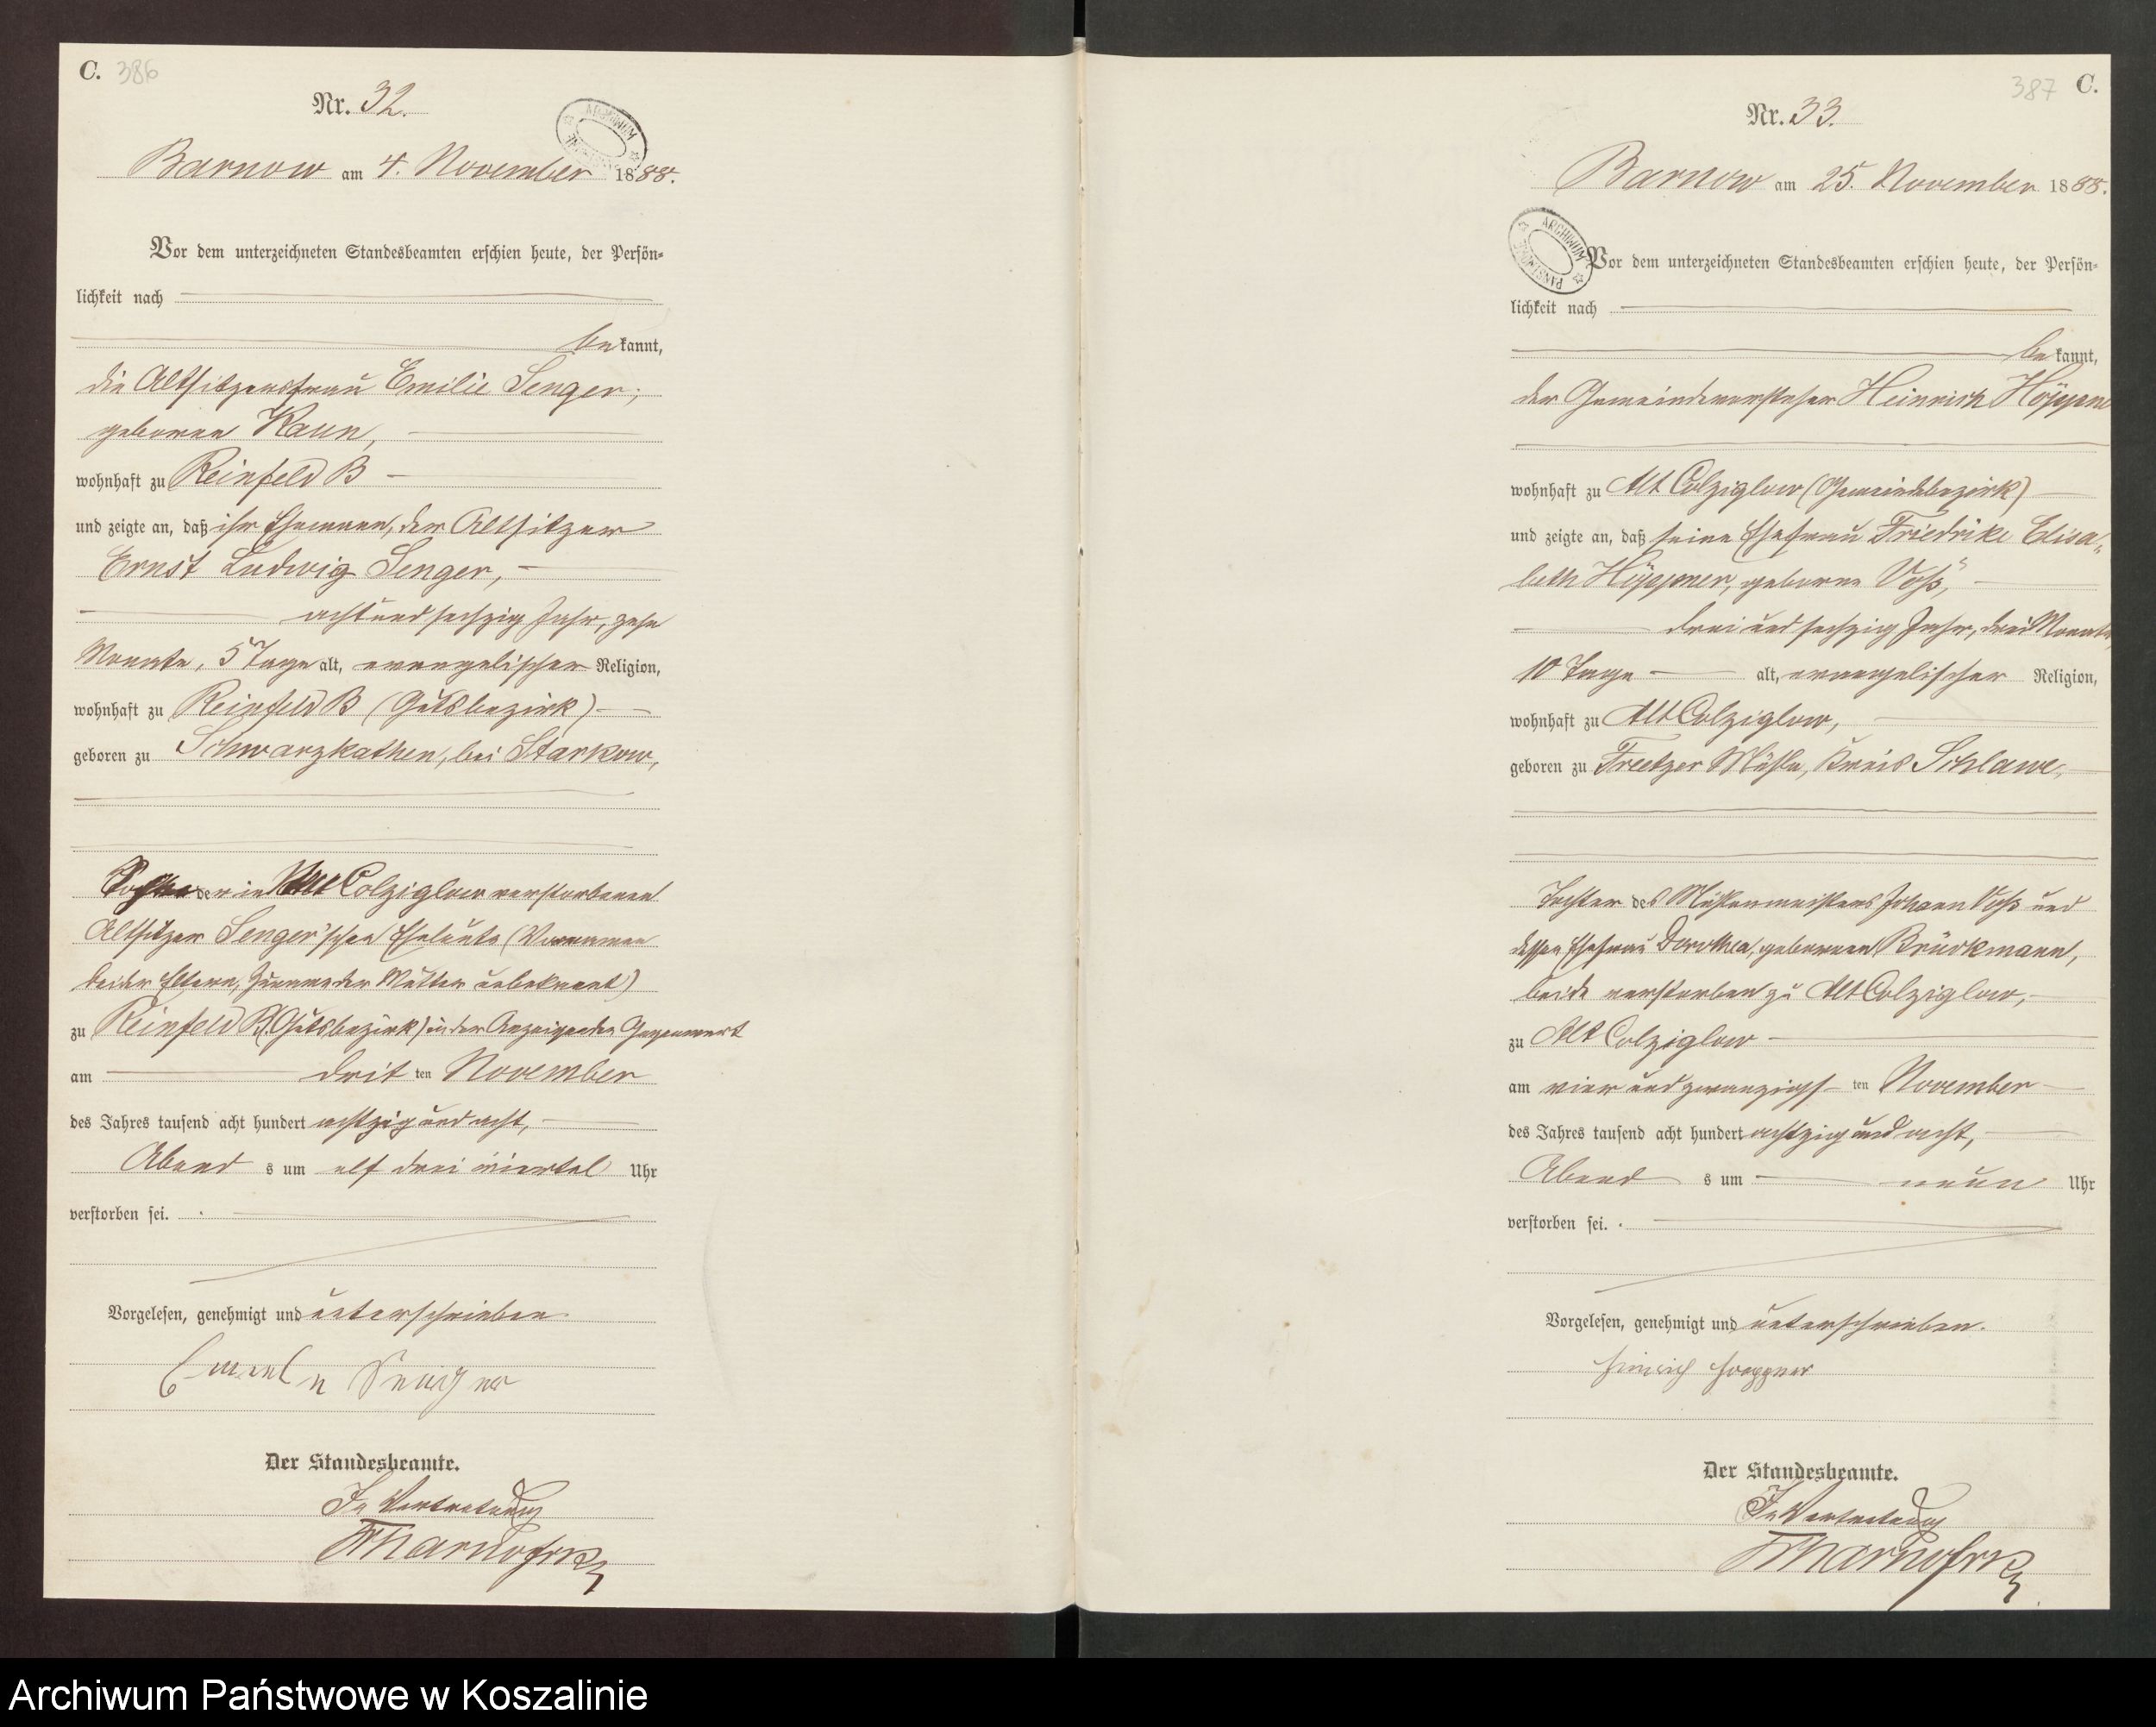 C. 386
Nr. 32.
ARCHIWUM
Barnow am 4. November 1888.
Vor dem unterzeichneten Standesbeamten erschien heute, der Persön-
lichkeit nach
be kannt,
die Altsitzersfrau Emilie Senger,
geborene Kaun,
wohnhaft zu Reinfeld B
und zeigte an, daß ihr Ehemann, der Altsitzer
Ernst Ludwig Senger,
acht und sechzig Jahr, zehn
Monate, 5 Tage alt, evangelischer Religion,
wohnhaft zu Reinfeld B (Gutsbezirk)
geboren zu Schwarzkathen, bei Starkow,
der in Alt Colziglow verstorbenen
Altsitzer Senger'schen Eheleute (Vornamen
beider Eltern, Zuname der Mutter unbekannt)
zu Reinfeld B. (Gutsbezirk) in der Anzeigenden Gegenwart
am drit ten November
des Jahres tausend acht hundert achtzig und acht,
Abend s um elf drei viertel Uhr
verstorben sei.
Vorgelesen, genehmigt und unterschrieben
Senger
Der Standesbeamte.
In Vertretung
387 C.
Nr. 33.
Barnow am 25. November 1888.
ARCHIWUM PAŃSTWOWE
Vor dem unterzeichneten Standesbeamten erschien heute, der Persön-
lichkeit nach
be kannt,
der Gemeindevorsteher Heinrich Höppne
wohnhaft zu Alt Colziglow (Gemeindebezirk)
und zeigte an, daß seine Ehefrau Friedrike Elisa-
beth Höppner, geborene Voß,
drei und sechzig Jahr, drei Monate,
10 Tage alt, evangelischer Religion,
wohnhaft zu Alt Colziglow,
geboren zu Freetzer Mühle, Kreis Schlawe,
Tochter des Mühlenmeisters Johann Voß und
dessen Ehefrau Dorothea, geborenen Brückmann,
beide verstorben zu Alt Colziglow,
zu Alt Colziglow
am vier und zwanzigs ten November
des Jahres tausend acht hundert achtzig und acht,
Abend s um neun Uhr
verstorben sei.
Vorgelesen, genehmigt und unterschrieben.
Heinrich Hoeppner
Der Standesbeamte.
In Vertretung
Archiwum Państwowe w Koszalinie